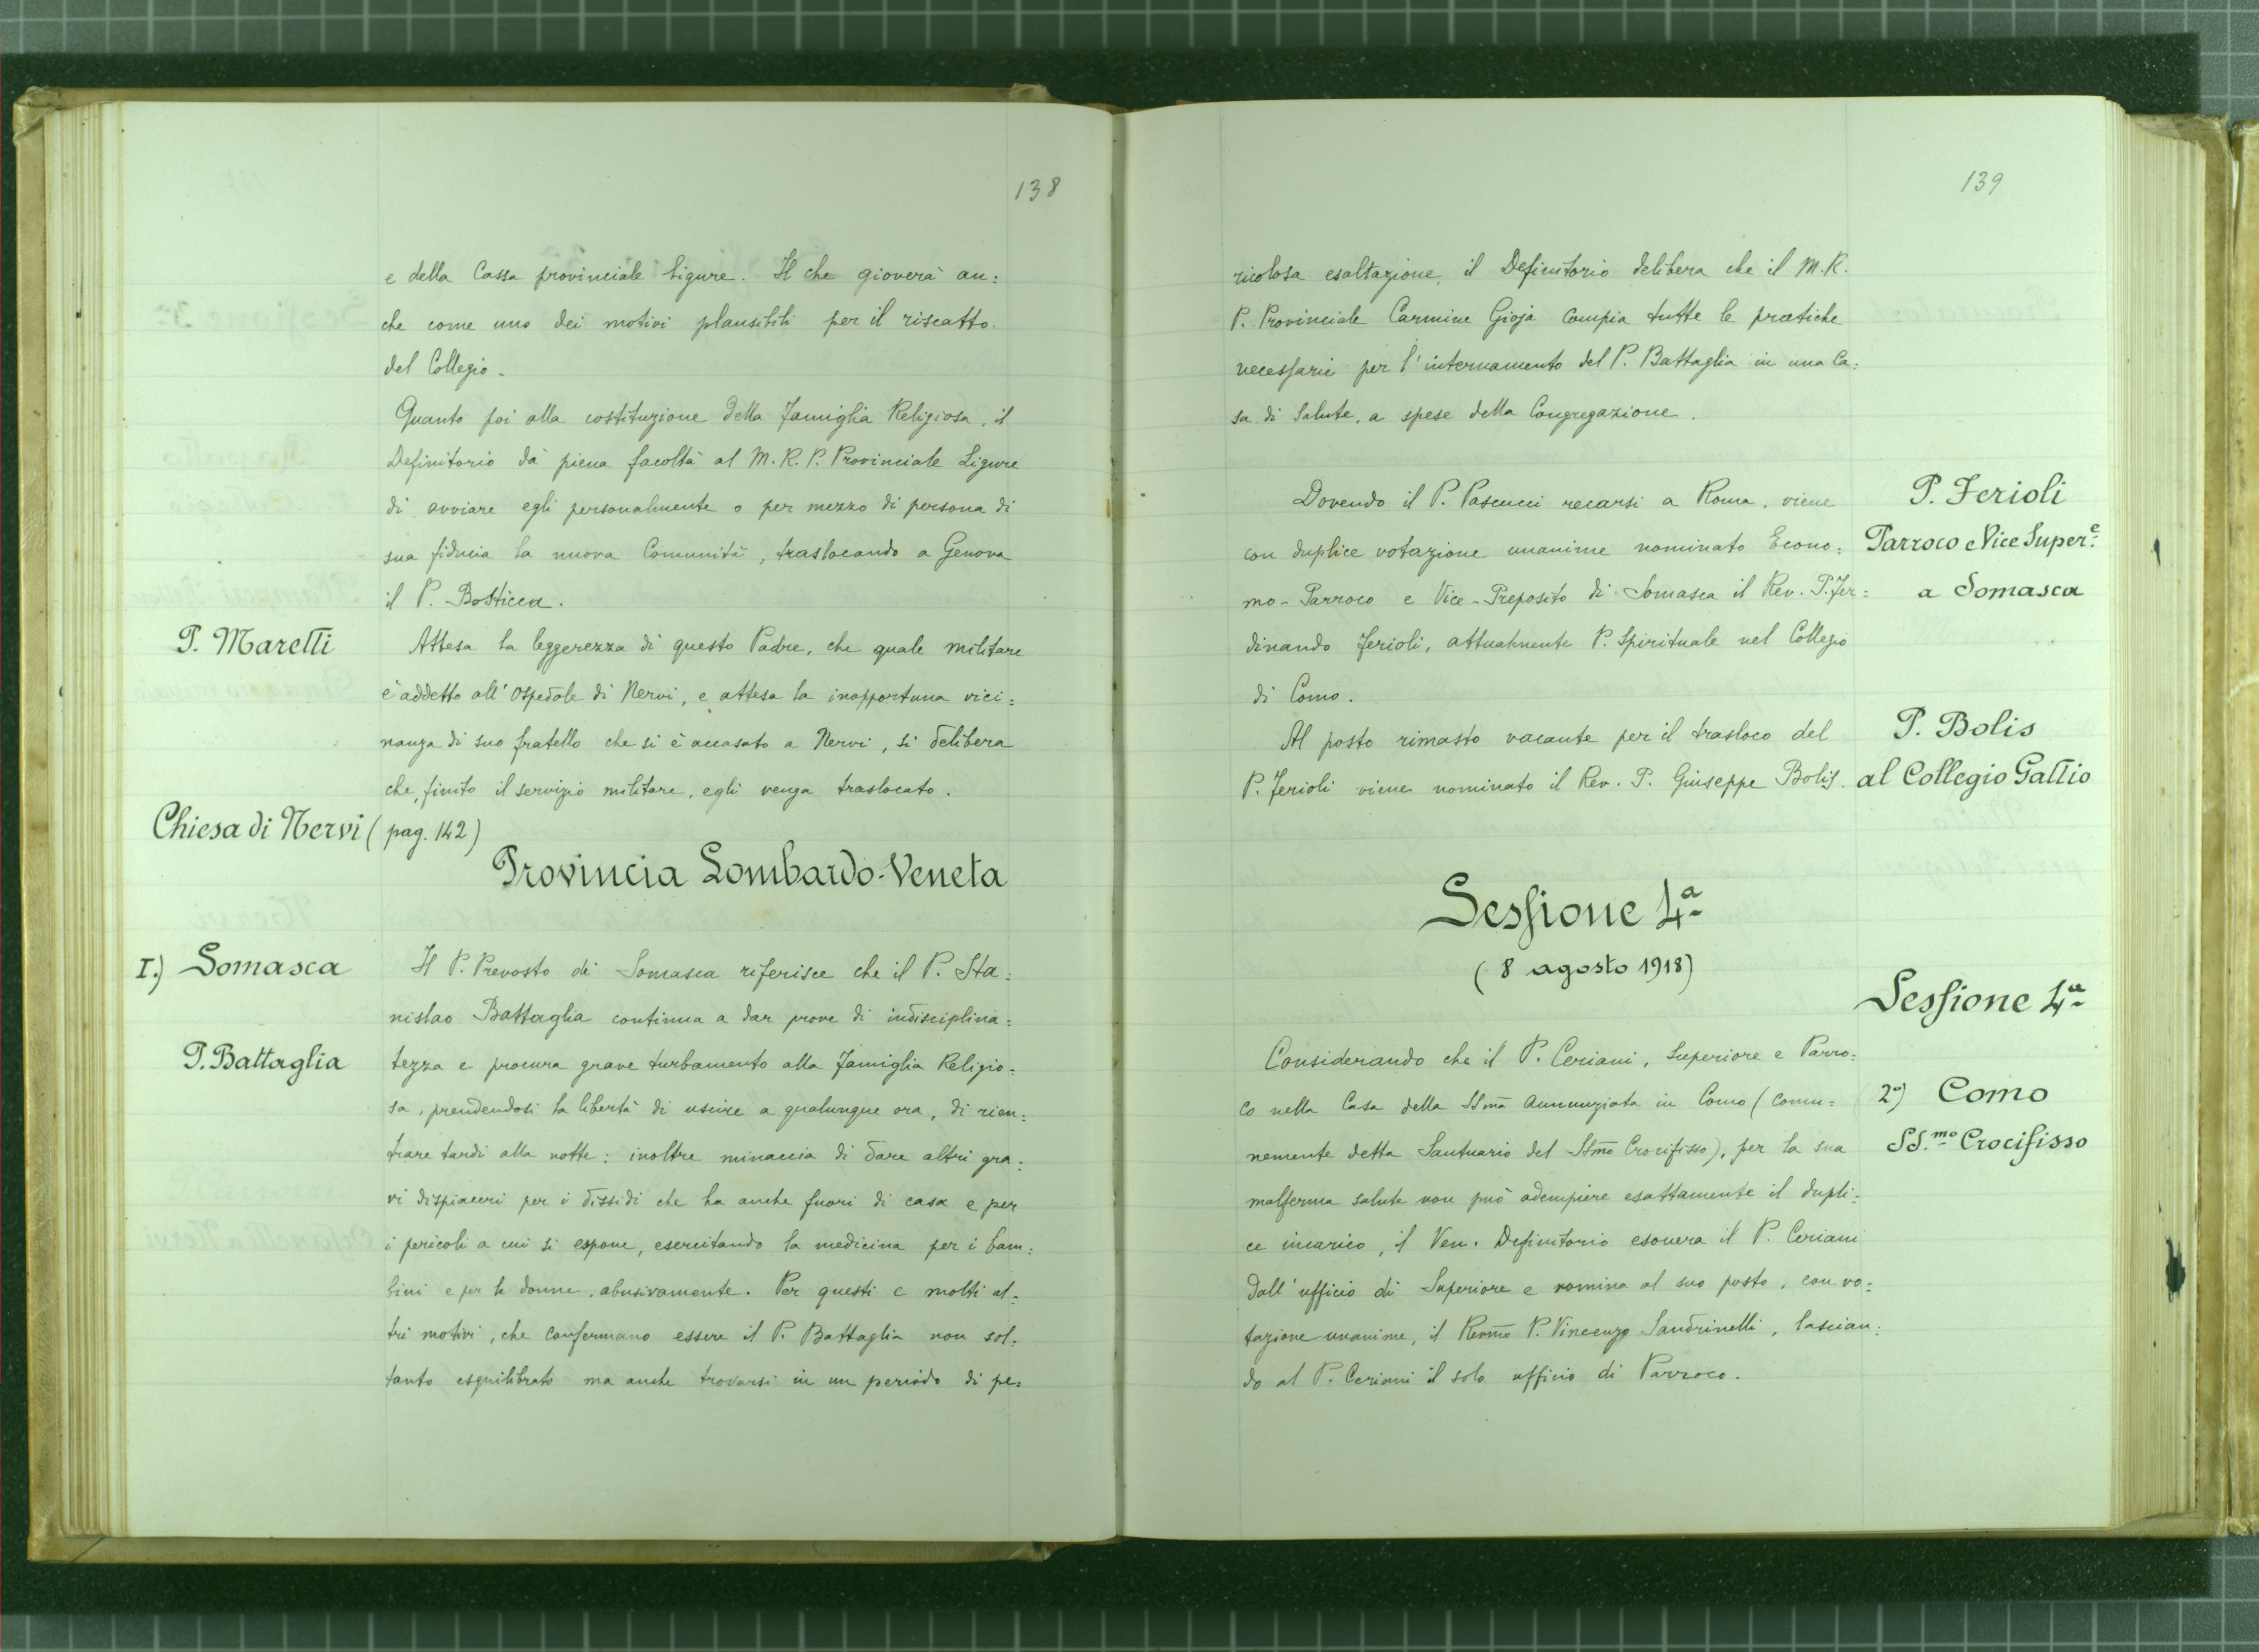 138
e della Cassa provinciale Ligure. Il che gioverà an=
che come uno dei motivi plausibili per il riscatto
del Collegio.
Quanto poi alla costituzione della Famiglia Religiosa, il
Definitorio dà piena facoltà al M. R. P. Provinciale Ligure
di avviare egli personalmente o per mezzo di persona di
sua fiducia la nuova Comunità, traslocando a Genova
il P. Bosticca.
P. Maretti
Attesa la leggerezza di questo Padre, che quale militare
è addetto all'Ospedale di Nervi, e attesa la inopportuna vici=
nanza di suo fratello che si è accasato a Nervi, si delibera
che, finito il servizio militare, egli venga traslocato.
Chiesa di Nervi (pag. 142)
Provincia Lombardo-Veneta
I.) Somasca
Il P. Prevosto di Somasca riferisce che il P. Sta=
nislao Battaglia continua a dar prove di indisciplina=
P. Battaglia
tezza e procura grave turbamento alla Famiglia Religio=
sa, prendendosi la libertà di uscire a qualunque ora, di rien=
trare tardi alla notte: inoltre minaccia di dare altri gra=
vi dispiaceri per i dissidi che ha anche fuori di casa e per
i pericoli a cui si espone, esercitando la medicina per i bam=
bini e per le donne, abusivamente. Per questi e molti al=
tri motivi, che confermano essere il P. Battaglia non sol=
tanto esquilibrato ma anche trovarsi in un periodo di pe=
139
ricolosa esaltazione, il Definitorio delibera che il M. R.
P. Provinciale Carmine Gioja compia tutte le pratiche
necessarie per l'internamento del P. Battaglia in una Ca=
sa di Salute, a spese della Congregazione.
P. Ferioli
Parroco e Vice Super.e
a Somasca
Dovendo il P. Pascucci recarsi a Roma, viene
con duplice votazione unanime nominato Econo=
mo-Parroco e Vice-Preposito di Somasca il Rev. P. Fer=
dinando Ferioli, attualmente P. Spirituale nel Collegio
di Como.
P. Bolis
al Collegio Gallio
Al posto rimasto vacante per il trasloco del
P. Ferioli viene nominato il Rev. P. Giuseppe Bolis.
Sessione 4a
(8 agosto 1918)
Sessione 4a
Considerando che il P. Ceriani, Superiore e Parro=
2°) Como
SS.mo Crocifisso
co nella Casa della SSma Annunziata in Como (comu=
nemente detta Santuario del SSmo Crocifisso), per la sua
malferma salute non può adempiere esattamente il dupli=
ce incarico, il Ven. Definitorio esonera il P. Ceriani
dall'ufficio di Superiore e nomina al suo posto, con vo=
tazione unanime, il Revmo P. Vincenzo Sandrinelli, lascian=
do al P. Ceriani il solo ufficio di Parroco.